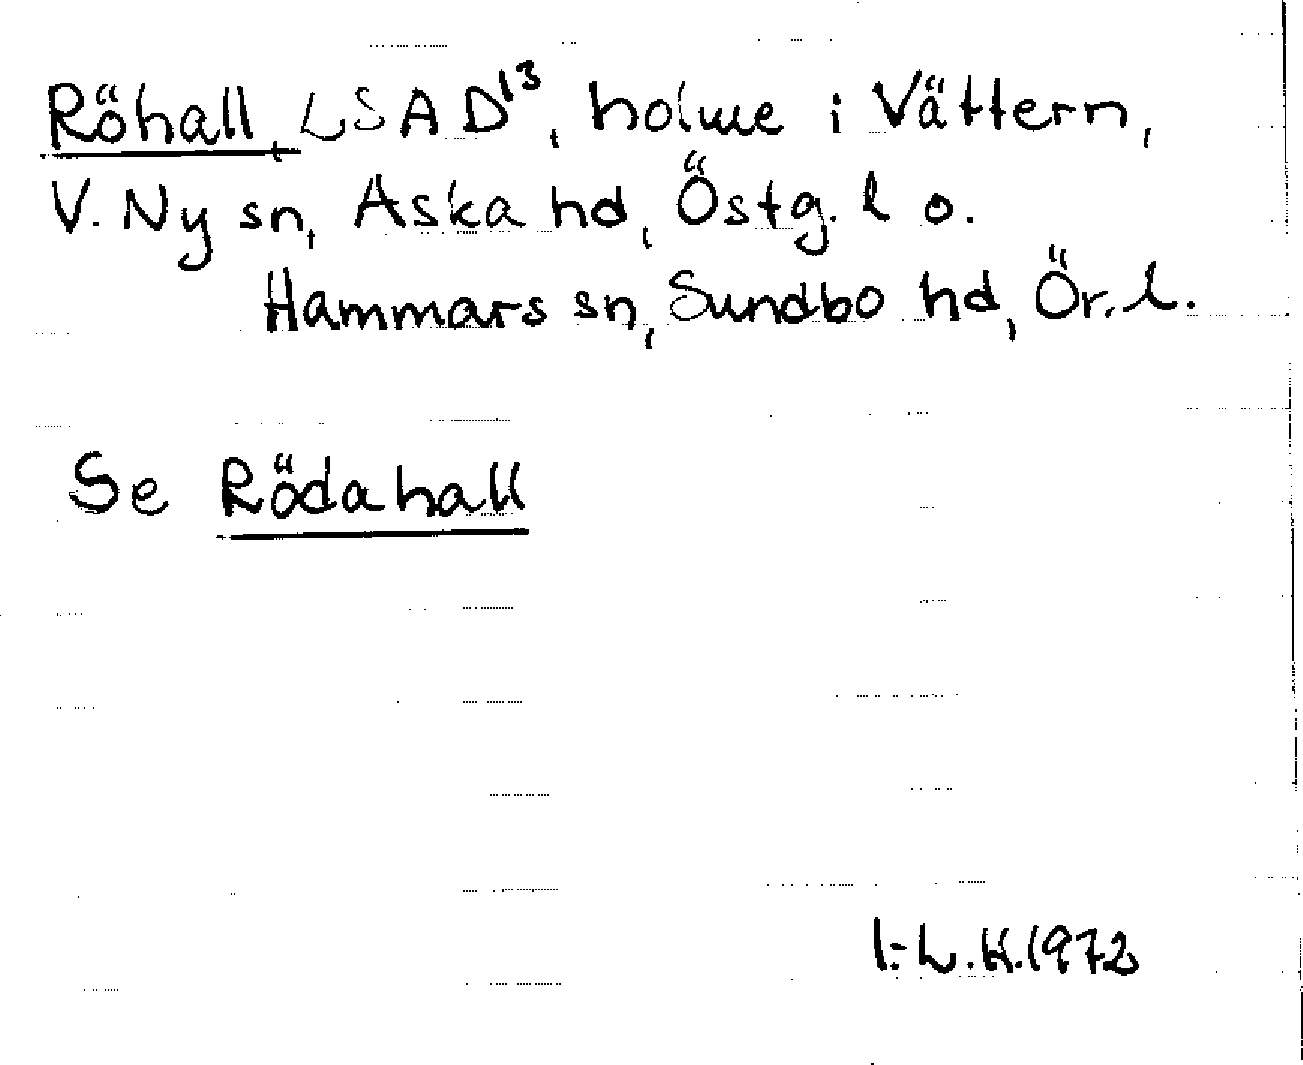 Röhall, LSAD¹³, holme i Vättern,
V. Ny sn, Aska hd, Östg. l o.
Hammars sn, Sundbo hd, Ör. l.
Se Rödahall
I-L.K.1972